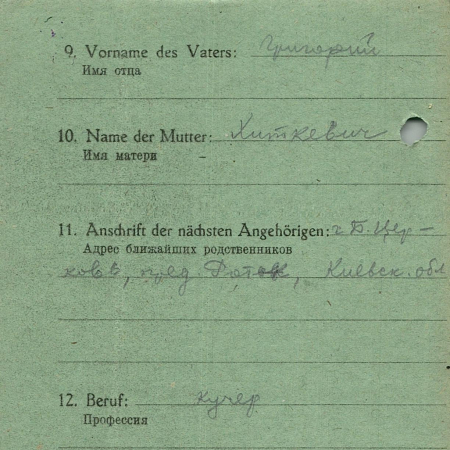 9. Vorname des Vaters: Григорий
Имя отца
10. Name der Mutter: Хиткевич
Имя матери
11. Anschrift der nächsten Angehörigen: г Б. Цер-
Адрес ближайших родственников
ковь, пред. Роток, Киевск. обл
12. Beruf: кучер
Профессия